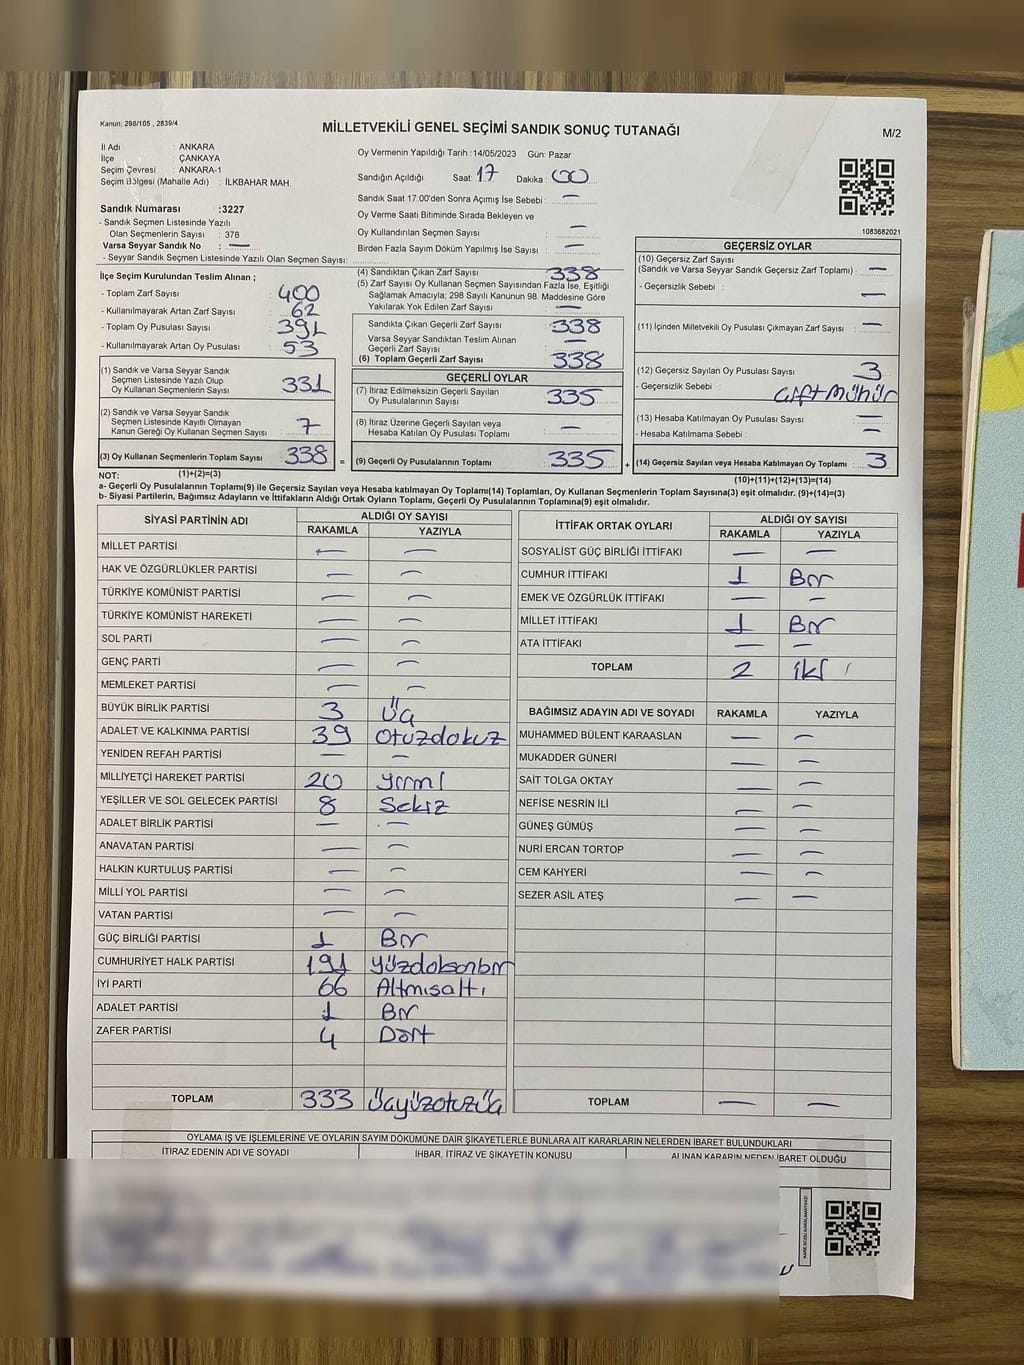 Kanun; 298/105 , 2839/4
MİLLETVEKİLİ GENEL SEÇİMİ SANDIK SONUÇ TUTANAĞI
M/2
İl Adı : ANKARA
İlçe : ÇANKAYA
Seçim Çevresi : ANKARA-1
Seçim Bölgesi (Mahalle Adı) : İLKBAHAR MAH.
Sandık Numarası :3227
- Sandık Seçmen Listesinde Yazılı
Olan Seçmenlerin Sayısı : 378
Varsa Seyyar Sandık No : —
- Seyyar Sandık Seçmen Listesinde Yazılı Olan Seçmen Sayısı:
Oy Vermenin Yapıldığı Tarih :14/05/2023 Gün: Pazar
Sandığın Açıldığı Saat: 17 Dakika : 00
Sandık Saat 17:00'den Sonra Açımış İse Sebebi : —
Oy Verme Saati Bitiminde Sırada Bekleyen ve
Oy Kullandırılan Seçmen Sayısı : —
Birden Fazla Sayım Döküm Yapılmış İse Sayısı : —
1083682021
İlçe Seçim Kurulundan Teslim Alınan ;
- Toplam Zarf Sayısı : 400
- Kullanılmayarak Artan Zarf Sayısı : 62
- Toplam Oy Pusulası Sayısı : 391
- Kullanılmayarak Artan Oy Pusulası : 53
(1) Sandık ve Varsa Seyyar Sandık
Seçmen Listesinde Yazılı Olup
Oy Kullanan Seçmenlerin Sayısı : 331
(2) Sandık ve Varsa Seyyar Sandık
Seçmen Listesinde Kayıtlı Olmayan
Kanun Gereği Oy Kullanan Seçmen Sayısı : 7
(3) Oy Kullanan Seçmenlerin Toplam Sayısı : 338
(4) Sandıktan Çıkan Zarf Sayısı : 338
(5) Zarf Sayısı Oy Kullanan Seçmen Sayısından Fazla İse, Eşitliği
Sağlamak Amacıyla; 298 Sayılı Kanunun 98. Maddesine Göre
Yakılarak Yok Edilen Zarf Sayısı : —
Sandıkta Çıkan Geçerli Zarf Sayısı : 338
Varsa Seyyar Sandıktan Teslim Alınan
Geçerli Zarf Sayısı : —
(6) Toplam Geçerli Zarf Sayısı : 338
GEÇERLİ OYLAR
(7) İtiraz Edilmeksizin Geçerli Sayılan
Oy Pusulalarının Sayısı : 335
(8) İtiraz Üzerine Geçerli Sayılan veya
Hesaba Katılan Oy Pusulası Toplamı : —
= (9) Geçerli Oy Pusulalarının Toplamı : 335
GEÇERSİZ OYLAR
(10) Geçersiz Zarf Sayısı
(Sandık ve Varsa Seyyar Sandık Geçersiz Zarf Toplamı) : —
- Geçersizlik Sebebi : —
(11) İçinden Milletvekili Oy Pusulası Çıkmayan Zarf Sayısı : —
(12) Geçersiz Sayılan Oy Pusulası Sayısı : 3
- Geçersizlik Sebebi : Çift Mühür
(13) Hesaba Katılmayan Oy Pusulası Sayısı : —
- Hesaba Katılmama Sebebi : —
+ (14) Geçersiz Sayılan veya Hesaba Katılmayan Oy Toplamı : 3
NOT: (1)+(2)=(3)
(10)+(11)+(12)+(13)=(14)
a- Geçerli Oy Pusulalarının Toplamı(9) ile Geçersiz Sayılan veya Hesaba katılmayan Oy Toplamı(14) Toplamları, Oy Kullanan Seçmenlerin Toplam Sayısına(3) eşit olmalıdır. (9)+(14)=(3)
b- Siyasi Partilerin, Bağımsız Adayların ve İttifakların Aldığı Ortak Oyların Toplamı, Geçerli Oy Pusulalarının Toplamına(9) eşit olmalıdır.
SİYASİ PARTİNİN ADI ALDIĞI OY SAYISI
RAKAMLA YAZIYLA
MİLLET PARTİSİ — —
HAK VE ÖZGÜRLÜKLER PARTİSİ — —
TÜRKİYE KOMÜNİST PARTİSİ — —
TÜRKİYE KOMÜNİST HAREKETİ — —
SOL PARTİ — —
GENÇ PARTİ — —
MEMLEKET PARTİSİ — —
BÜYÜK BİRLİK PARTİSİ 3 Üç
ADALET VE KALKINMA PARTİSİ 39 Otuzdokuz
YENİDEN REFAH PARTİSİ — —
MİLLİYETÇİ HAREKET PARTİSİ 20 yirmi
YEŞİLLER VE SOL GELECEK PARTİSİ 8 Sekiz
ADALET BİRLİK PARTİSİ — —
ANAVATAN PARTİSİ — —
HALKIN KURTULUŞ PARTİSİ — —
MİLLİ YOL PARTİSİ — —
VATAN PARTİSİ — —
GÜÇ BİRLİĞİ PARTİSİ 1 Bir
CUMHURİYET HALK PARTİSİ 191 yüzdoksanbir
İYİ PARTİ 66 Altmışaltı
ADALET PARTİSİ 1 Bir
ZAFER PARTİSİ 4 Dört
TOPLAM 333 üçyüzotuzüç
İTTİFAK ORTAK OYLARI ALDIĞI OY SAYISI
RAKAMLA YAZIYLA
SOSYALİST GÜÇ BİRLİĞİ İTTİFAKI — —
CUMHUR İTTİFAKI 1 Bir
EMEK VE ÖZGÜRLÜK İTTİFAKI — —
MİLLET İTTİFAKI 1 Bir
ATA İTTİFAKI — —
TOPLAM 2 iki
BAĞIMSIZ ADAYIN ADI VE SOYADI RAKAMLA YAZIYLA
MUHAMMED BÜLENT KARAASLAN — —
MUKADDER GÜNERİ — —
SAİT TOLGA OKTAY — —
NEFİSE NESRİN İLİ — —
GÜNEŞ GÜMÜŞ — —
NURİ ERCAN TORTOP — —
CEM KAHYERİ — —
SEZER ASİL ATEŞ — —
TOPLAM — —
OYLAMA İŞ VE İŞLEMLERİNE VE OYLARIN SAYIM DÖKÜMÜNE DAİR ŞİKAYETLERLE BUNLARA AİT KARARLARIN NELERDEN İBARET BULUNDUKLARI
İTİRAZ EDENİN ADI VE SOYADI İHBAR, İTİRAZ VE ŞİKAYETİN KONUSU ALINAN KARARIN NEDEN İBARET OLDUĞU